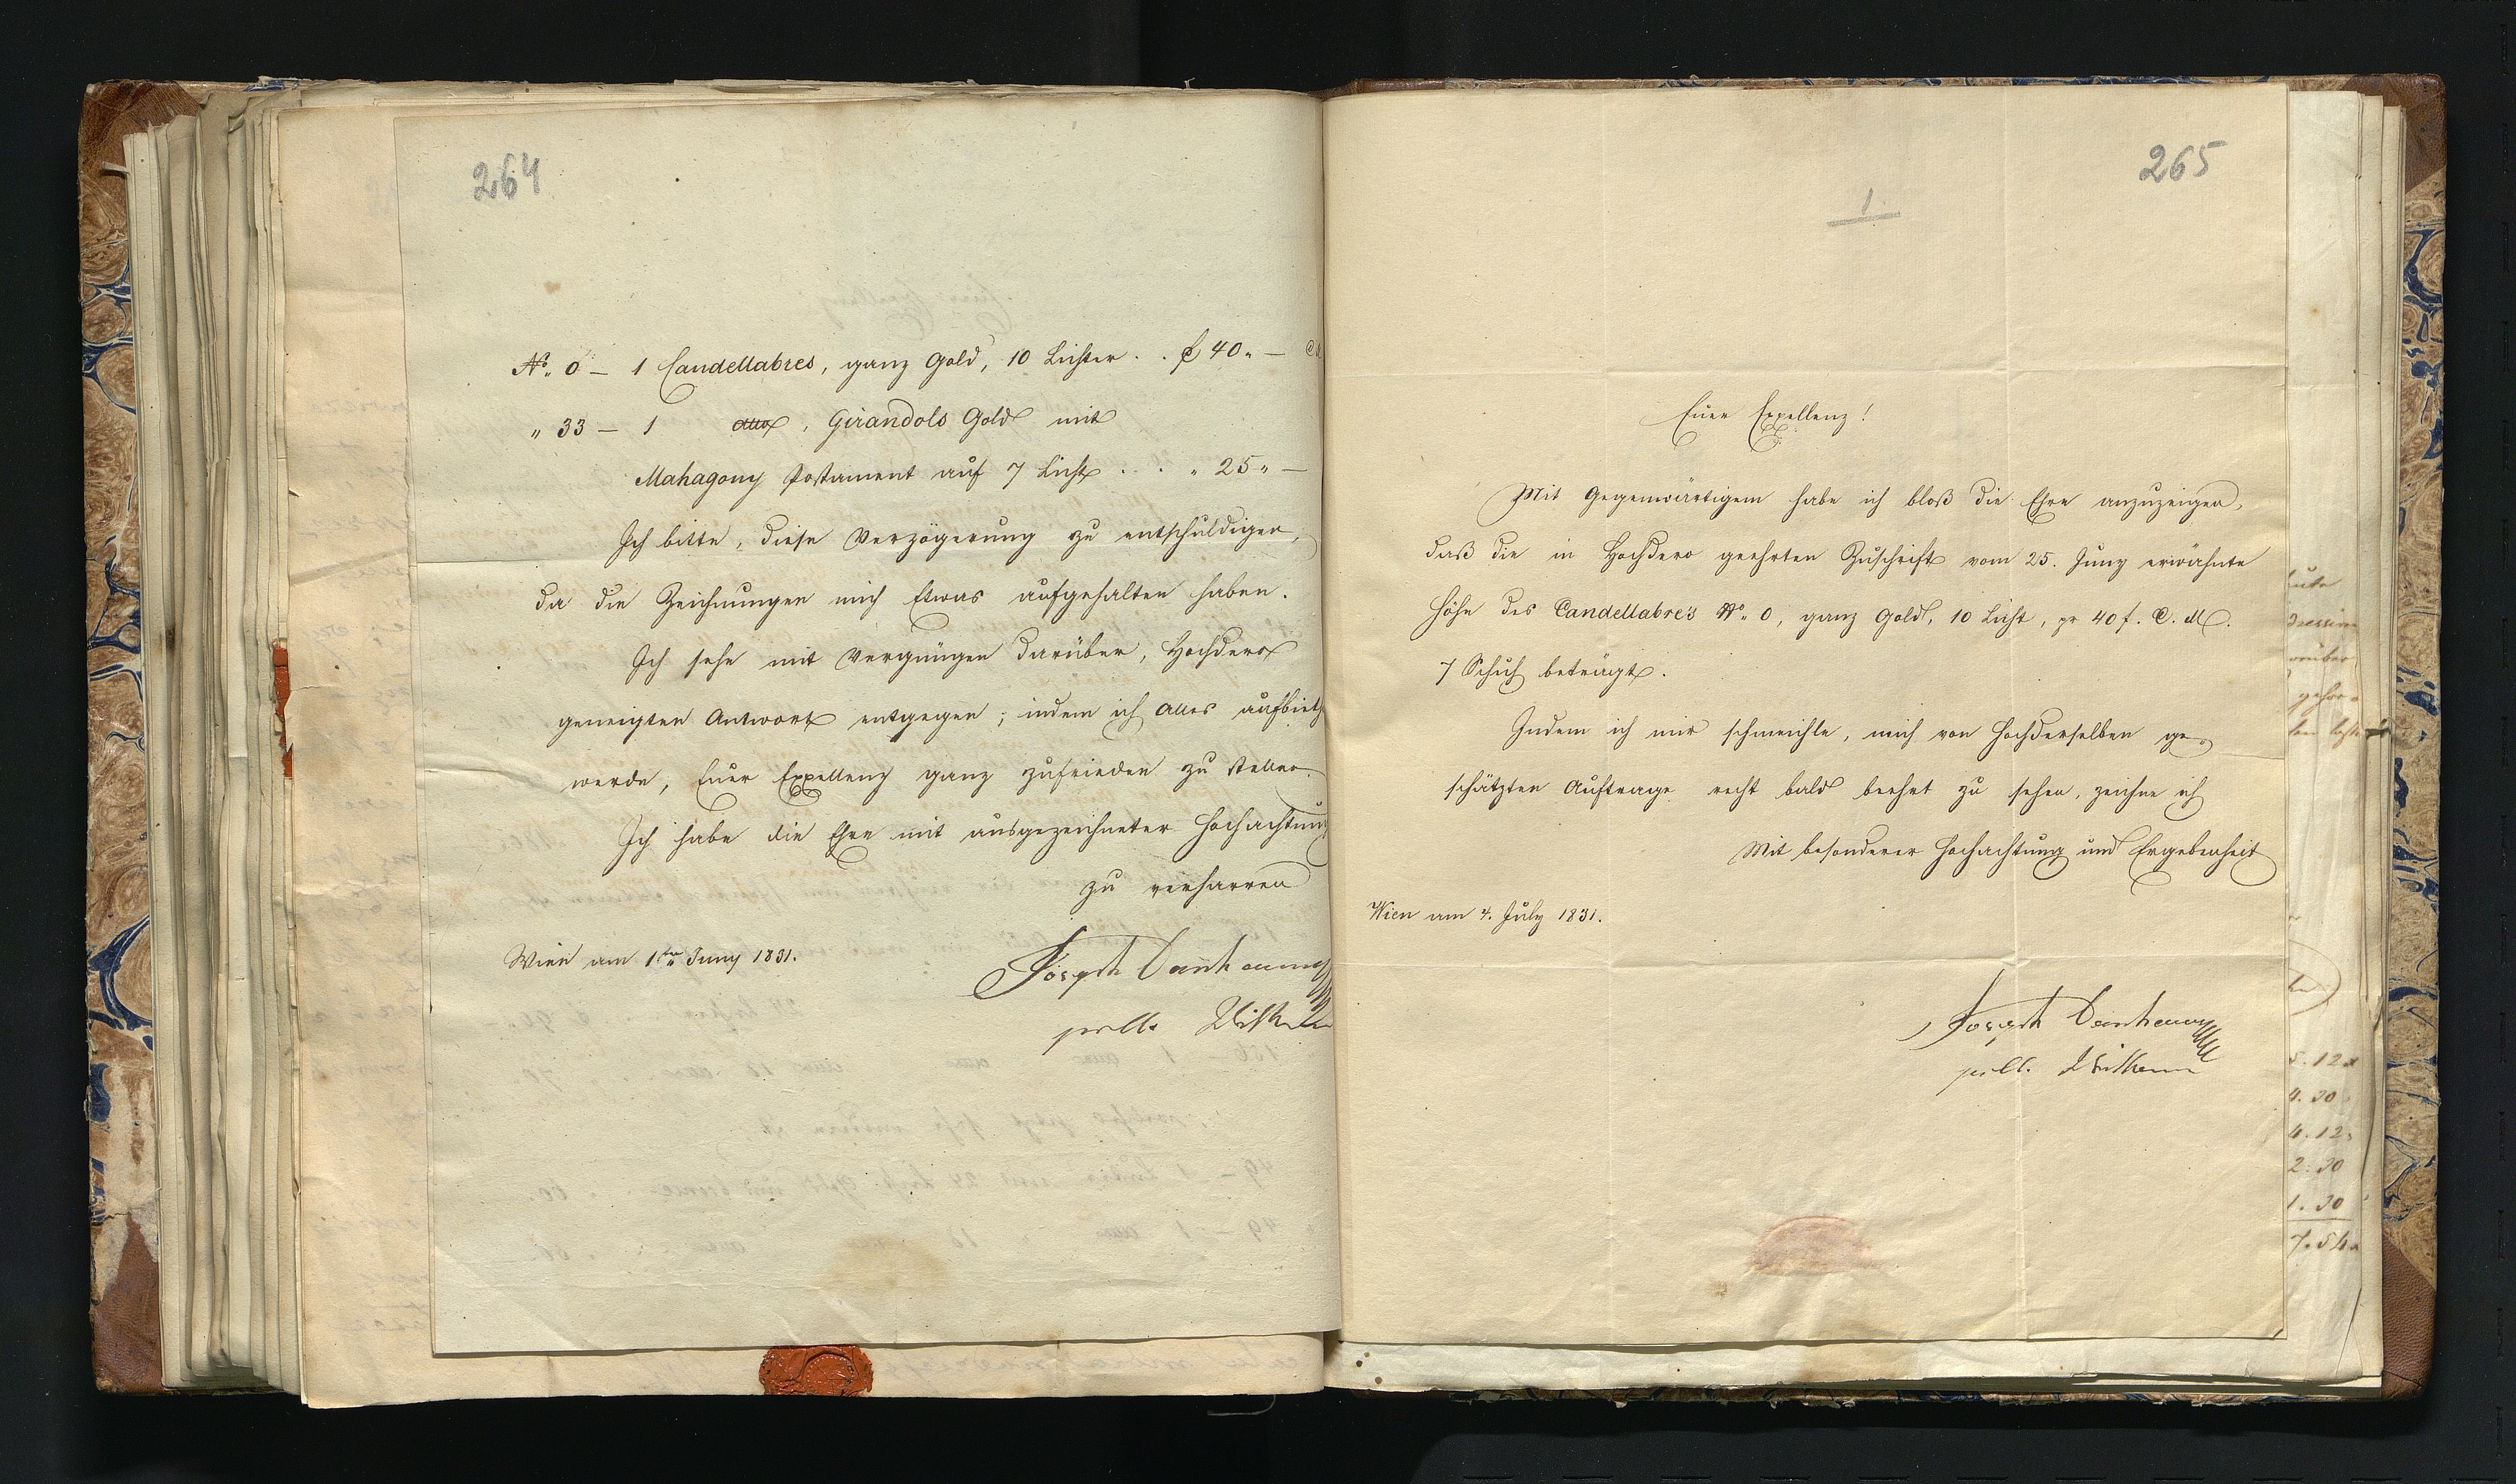 264
No. 0 – 1 Candellabres, ganz Gold, 10 Lichter . . f 40 „ –
„ 33 – 1 detto, Girandols Gold mit
Mahagony Postament auf 7 Licht . . . „ 25 „ –
Ich bitte, diese Verzögerung zu entschuldigen,
da die Zeichnungen mich Etwas aufgehalten haben.
Ich sehe mit Vergnügen darüber, Hochdero
geneigten Antwort entgegen; indem ich Alles aufbieth
werde, Euer Exzellenz ganz zufrieden zu stellen.
Ich habe die Ehre mit ausgezeichneter Hochachtung
zu verharren
Wien am 1ten Juny 1831.
Joseph Danhauser
265
1.
Euer Exzellenz!
Mit Gegenwärtigem habe ich bloß die Ehre anzuzeigen,
daß die in Hochdero geehrten Zuschrift vom 25. Juny erwähnte
Höhe des Candellabre's No. 0, ganz Gold, 10 Licht, pr 40 f. C. M.
7 Schuh beträgt.
Indem ich mir schmeichle, mich von Hochderselben ge-
schätzten Auftrage recht bald beehrt zu sehen, zeichne ich
Mit besonderer Hochachtung und Ergebenheit
Wien am 4. July 1831.
Joseph Danhauser
5.12
4.30
4.12
2.30
1.30